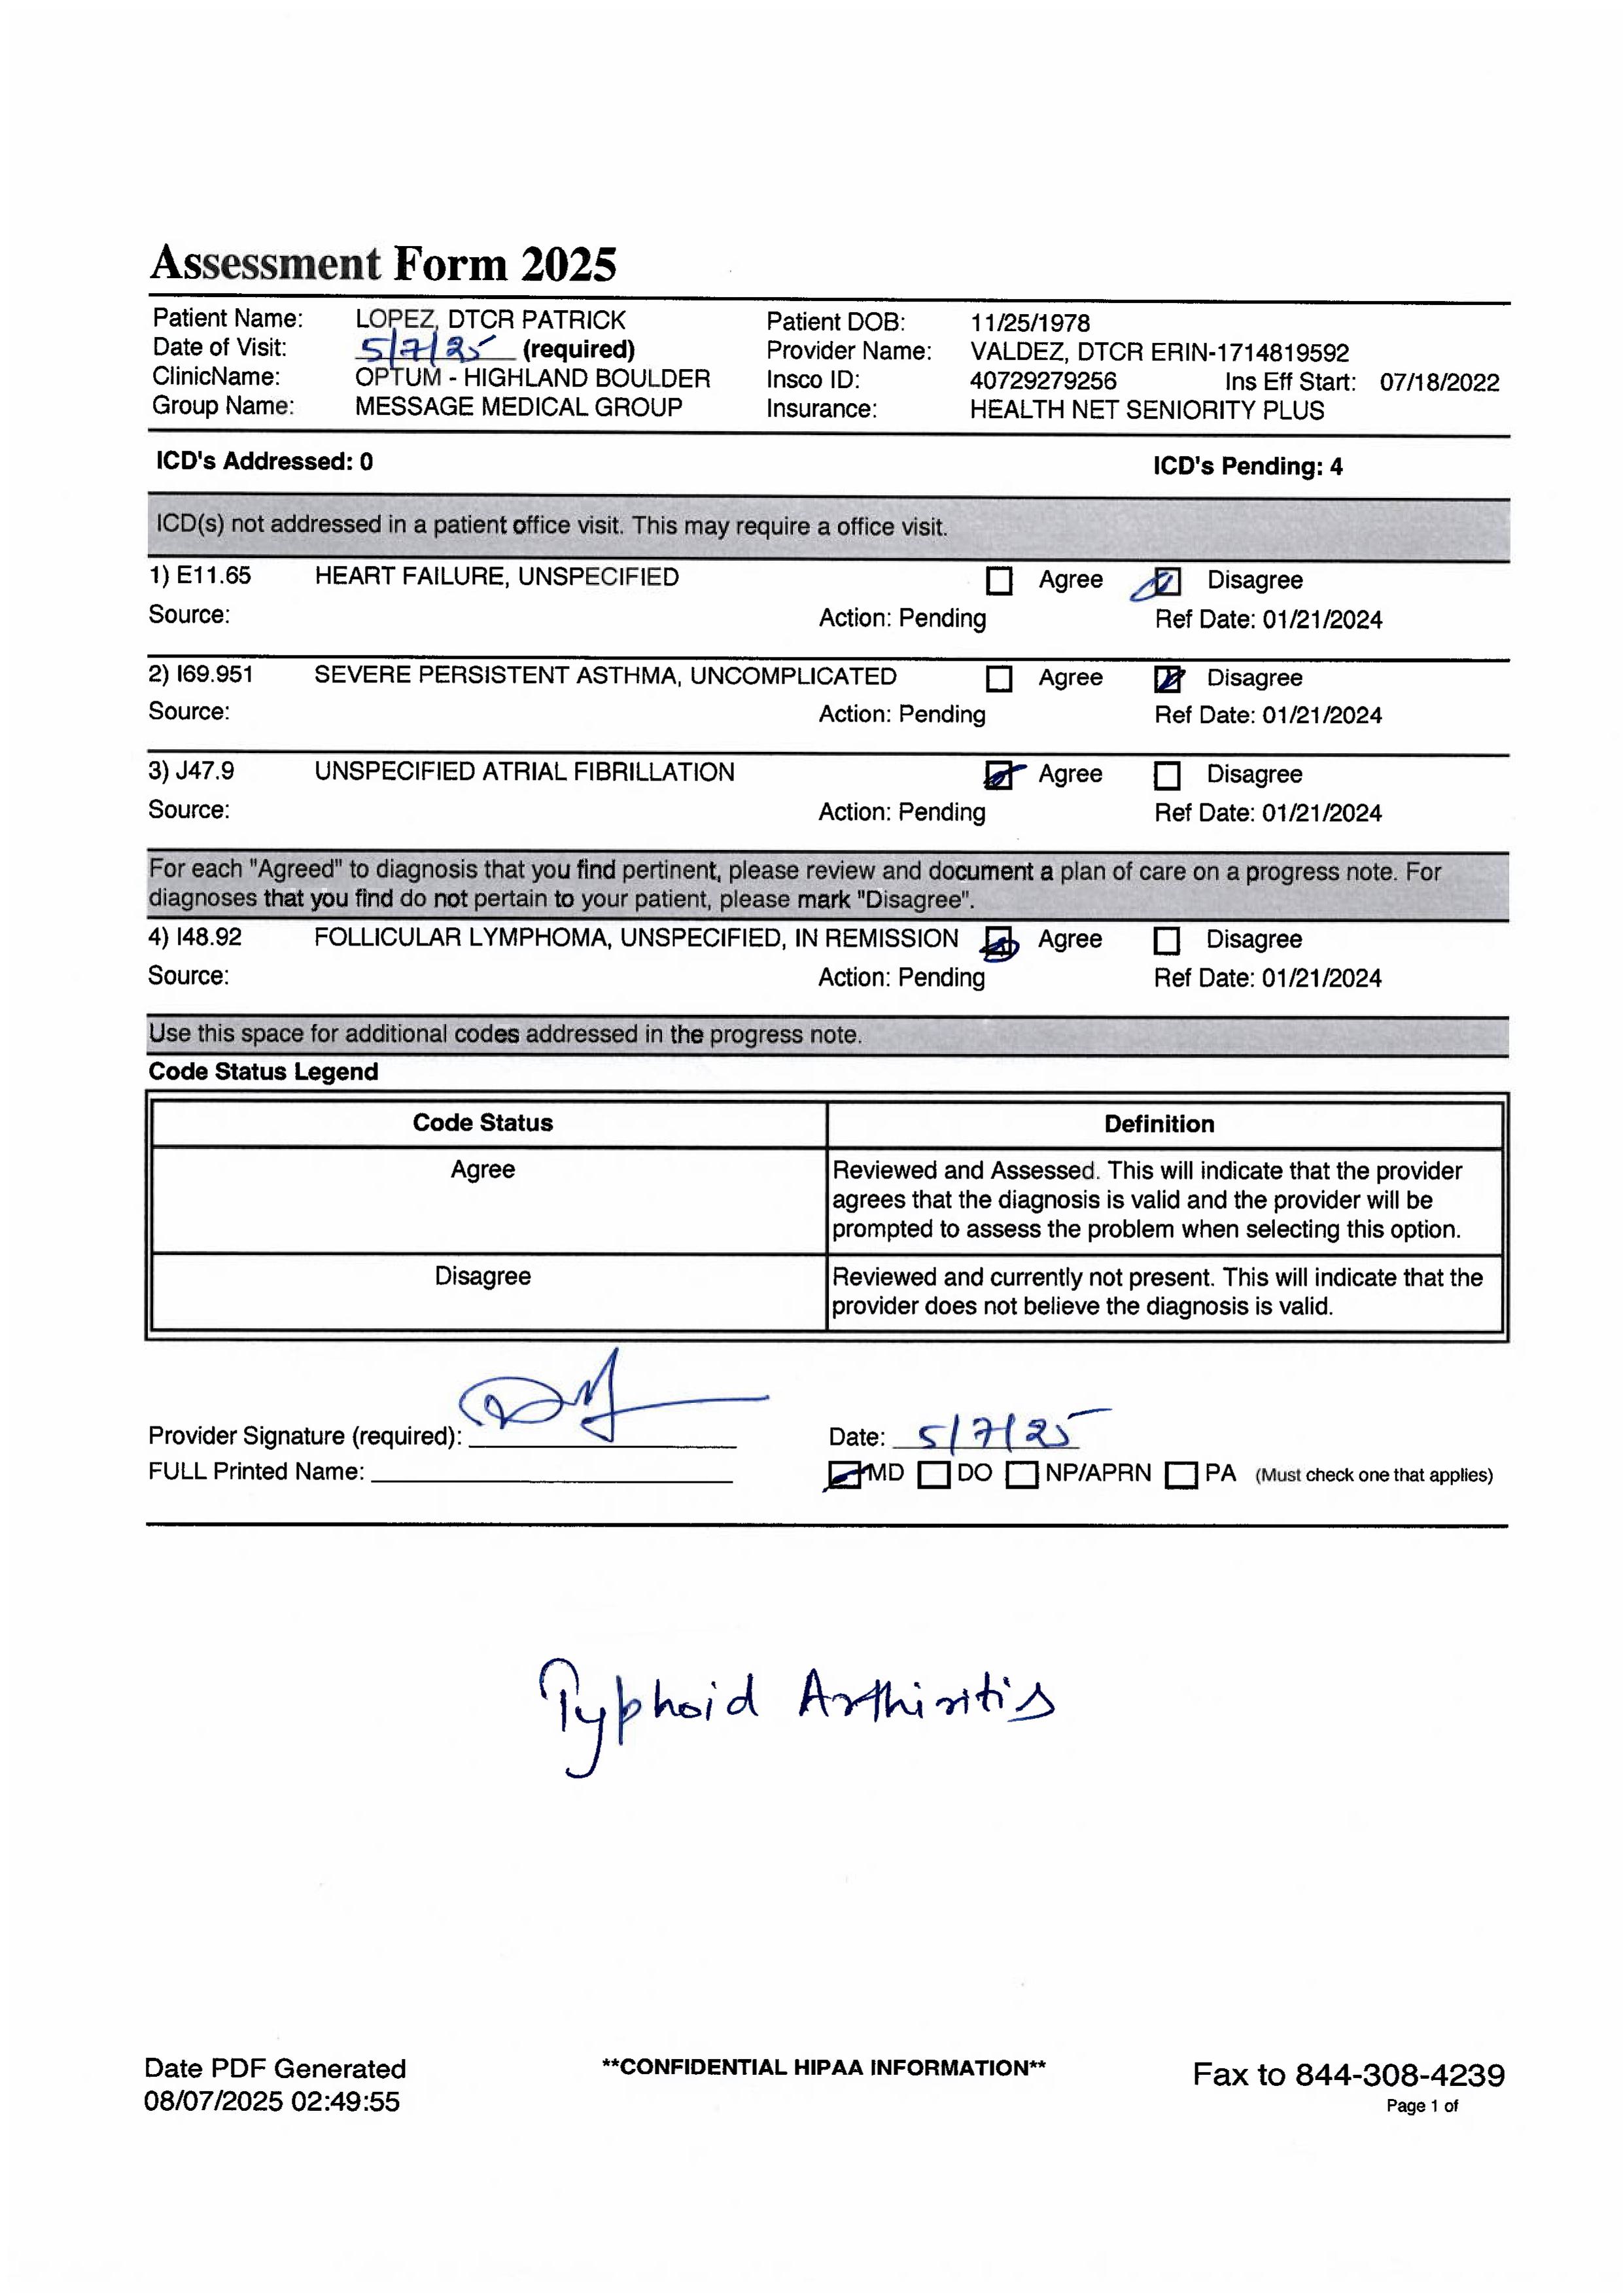 Assessment Form 2025
Patient Name: LOPEZ, DTCR PATRICK Patient DOB: 11/25/1978
Date of Visit: 5/7/25 (required) Provider Name: VALDEZ, DTCR ERIN-1714819592
ClinicName: OPTUM - HIGHLAND BOULDER Insco ID: 40729279256 Ins Eff Start: 07/18/2022
Group Name: MESSAGE MEDICAL GROUP Insurance: HEALTH NET SENIORITY PLUS
ICD's Addressed: 0 ICD's Pending: 4
ICD(s) not addressed in a patient office visit. This may require a office visit.
1) E11.65 HEART FAILURE, UNSPECIFIED Agree Disagree
Source: Action: Pending Ref Date: 01/21/2024
2) I69.951 SEVERE PERSISTENT ASTHMA, UNCOMPLICATED Agree Disagree
Source: Action: Pending Ref Date: 01/21/2024
3) J47.9 UNSPECIFIED ATRIAL FIBRILLATION Agree Disagree
Source: Action: Pending Ref Date: 01/21/2024
For each "Agreed" to diagnosis that you find pertinent, please review and document a plan of care on a progress note. For
diagnoses that you find do not pertain to your patient, please mark "Disagree".
4) I48.92 FOLLICULAR LYMPHOMA, UNSPECIFIED, IN REMISSION Agree Disagree
Source: Action: Pending Ref Date: 01/21/2024
Use this space for additional codes addressed in the progress note.
Code Status Legend
Code Status Definition
Agree Reviewed and Assessed. This will indicate that the provider
agrees that the diagnosis is valid and the provider will be
prompted to assess the problem when selecting this option.
Disagree Reviewed and currently not present. This will indicate that the
provider does not believe the diagnosis is valid.
Provider Signature (required): Date: 5/7/25
FULL Printed Name: MD DO NP/APRN PA (Must check one that applies)
Typhoid Arthiritis
Date PDF Generated **CONFIDENTIAL HIPAA INFORMATION** Fax to 844-308-4239
08/07/2025 02:49:55 Page 1 of